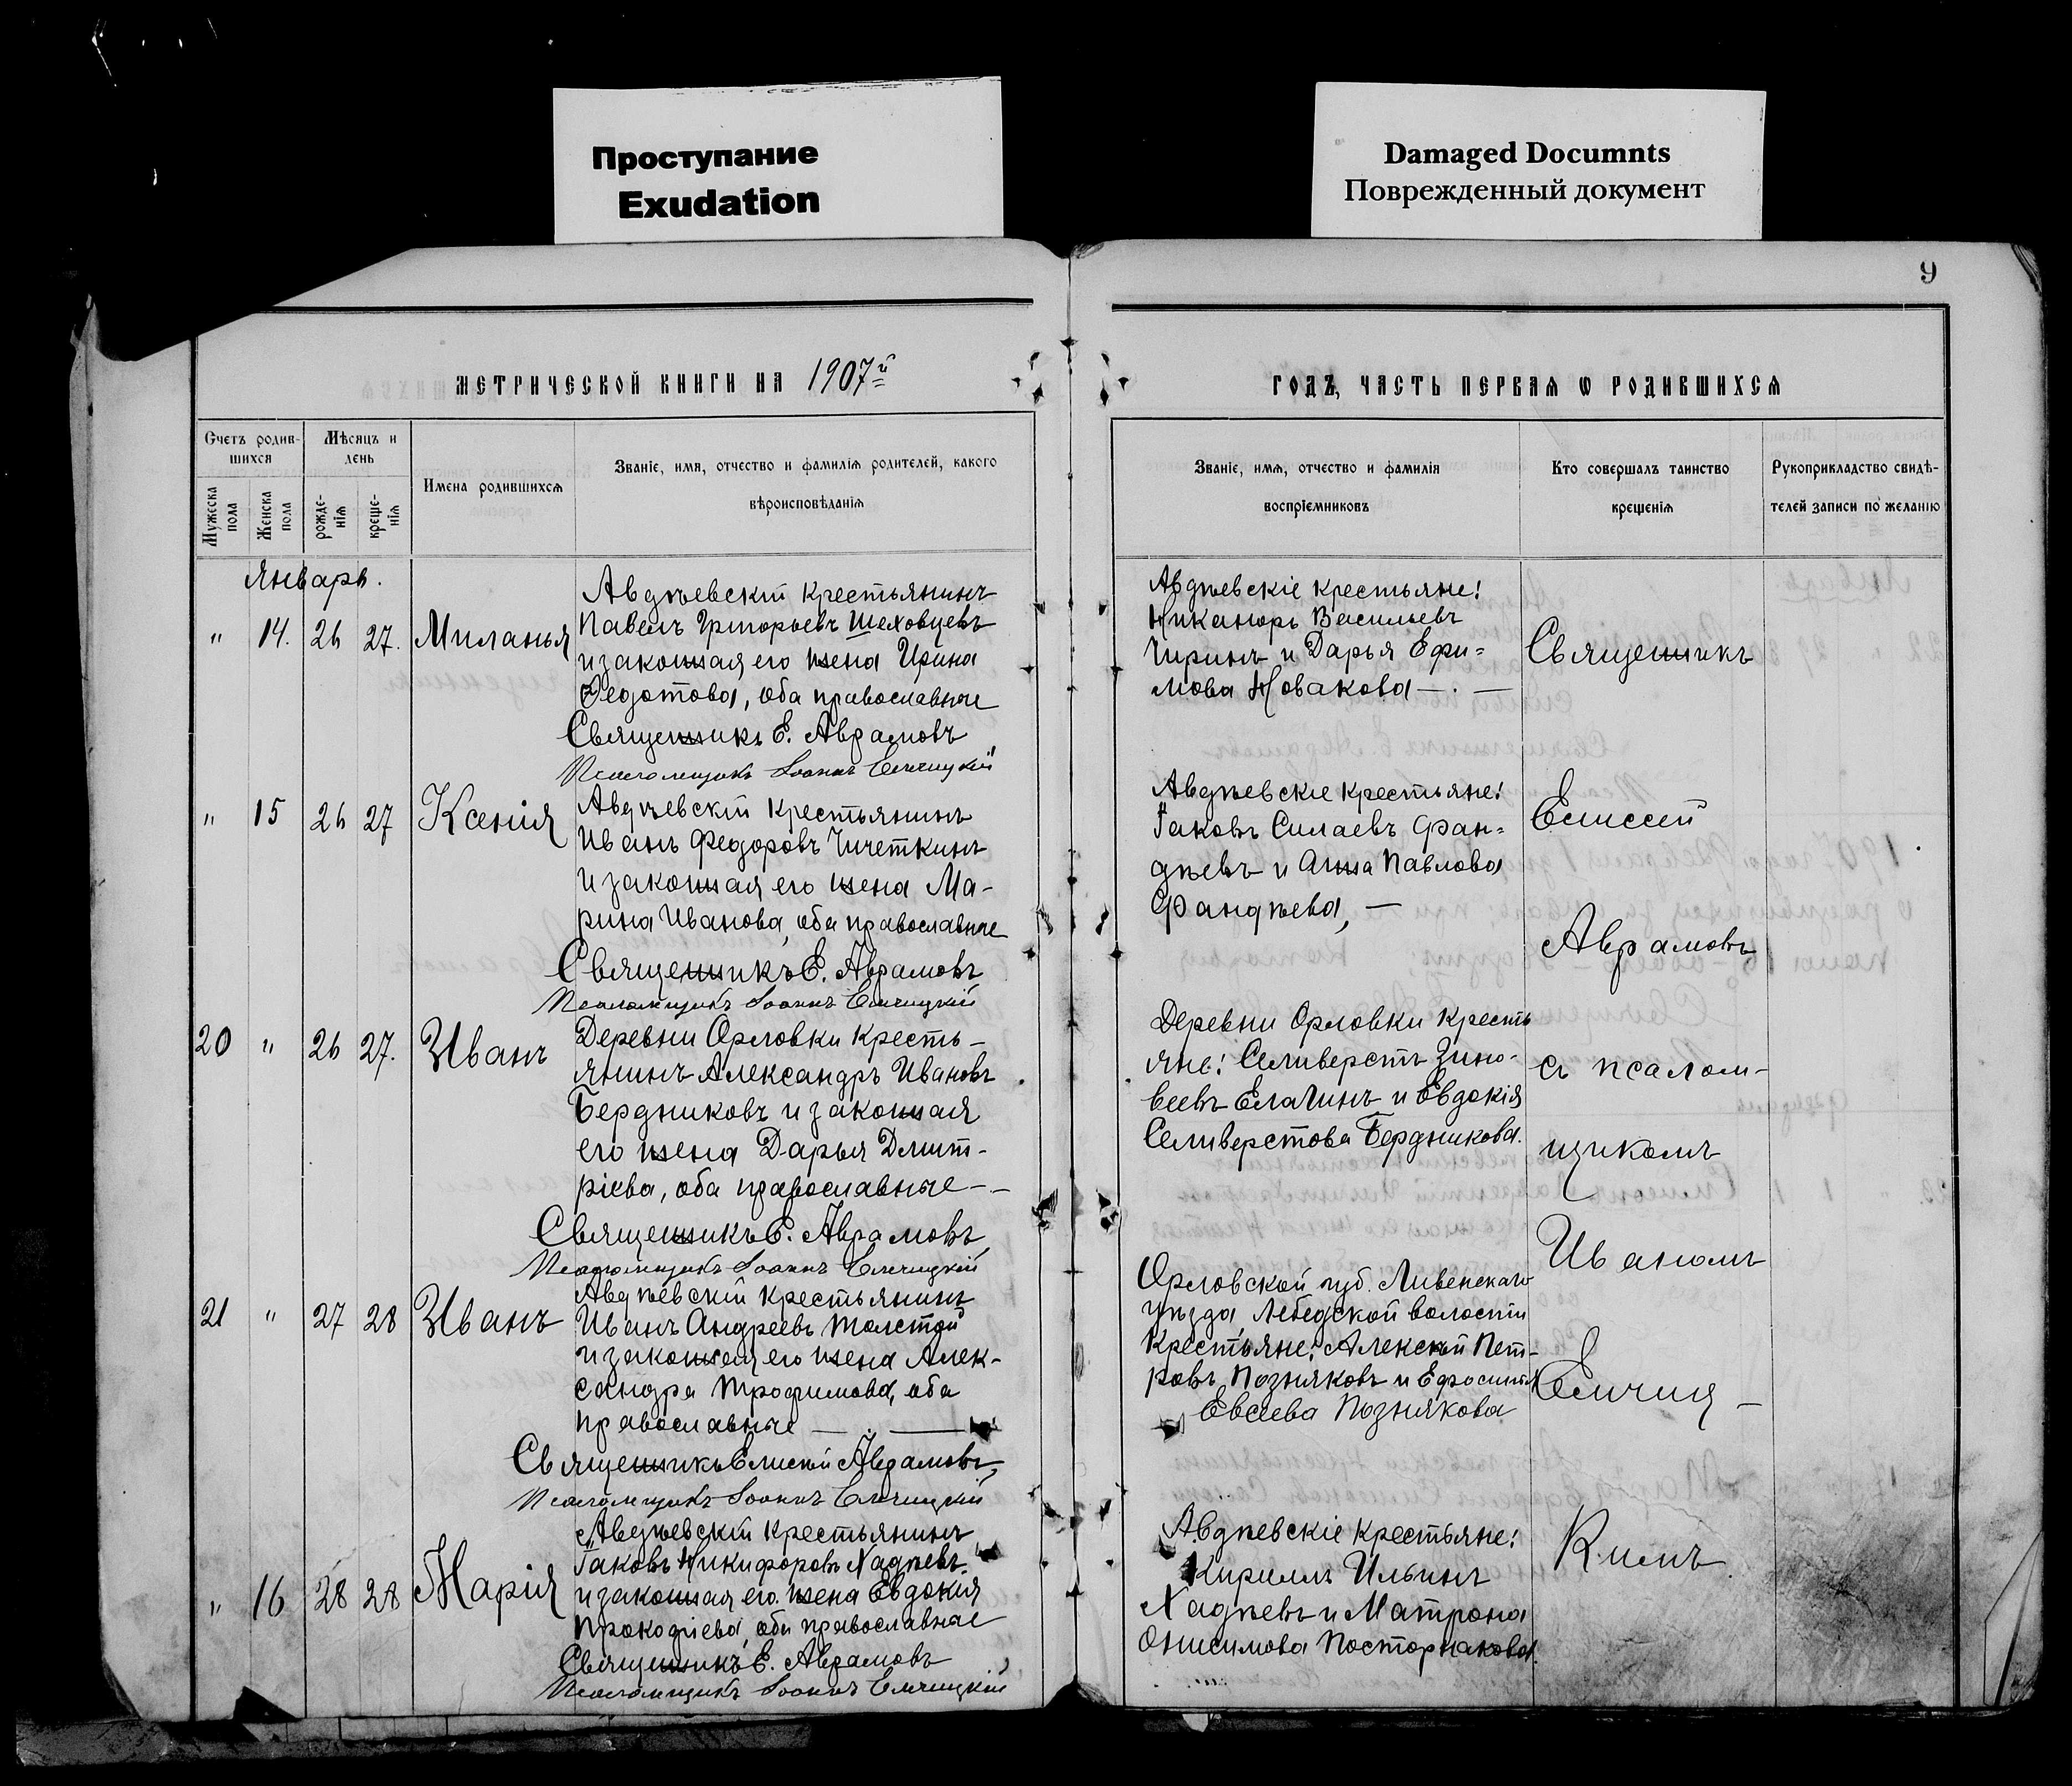 Проступание
Exudation
Damaged Documnts
Поврежденный документ
9
МЕТРИЧЕСКОЙ КНИГИ НА 1907й
ГОДЪ, ЧАСТЬ ПЕРВАЯ Ѡ РОДИВШИХСЯ
Счетъ родив-
шихся
Мужеска
пола
Женска
пола
Мѣсяцъ и
день
рожде-
нія
креще-
нія
Имена родившихся
Званіе, имя, отчество и фамилія родителей, какого
вѣроисповѣданія
Званіе, имя, отчество и фамилія
воспріемниковъ
Кто совершалъ таинство
крещенія
Рукоприкладство свидѣ-
телей записи по желанію
Январь.
" 14. 26 27. Миланья
Авдѣевскій крестьянинъ
Павелъ Григорьевъ Шеховцевъ
и законная его жена Ирина
Федотова, оба православные
Священникъ Е. Аврамовъ
Псаломщикъ Іоаннъ
Авдѣевскіе крестьяне:
Никаноръ Васильевъ
Чиринъ и Дарья Ефи-
мова Новакова —.—
" 15 26 27 Ксенія
Авдѣевскій крестьянинъ
Иванъ Федоровъ Чичеткинъ
и законная его жена Ма-
рина Иванова, оба православные
Священникъ Е. Аврамовъ
Псаломщикъ Іоаннъ
Авдѣевскіе крестьяне:
Іаковъ Силаевъ Фан-
дѣевъ и Анна Павлова
Фандѣева, —
20 " 26 27. Иванъ
Деревни Орловки кресть-
янинъ Александръ Ивановъ
Бердниковъ и законная
его жена Дарья Дмит-
ріева, оба православные - -
Священникъ Е. Аврамовъ
Псаломщикъ Іоаннъ
Деревни Орловки кресть
яне: Селиверстъ Зино-
веевъ Елагинъ и Евдокія
Селиверстова Бердникова.
21 " 27 28 Иванъ
Авдѣевскій крестьянинъ
Иванъ Андреевъ Толстой
и законная его жена Алек-
сандра Трофимова, оба
православные — . —
Священникъ Елисей Аврамовъ
Псаломщикъ Іоаннъ
Орловской губ. Ливенскаго
уѣзда, Лебедской волости
крестьяне: Алексѣй Пет-
ровъ Позняковъ и Ефросинья
Евсеева Познякова
" 16 28 28 Марія
Авдѣевскій крестьянинъ
Іаковъ Никифоровъ Хадѣевъ
и законная его жена Евдокія
Прокофіева, оба православные
Священникъ Е. Аврамовъ
Псаломщикъ Іоаннъ
Авдѣевскіе крестьяне:
Кириллъ Ильинъ
Хадѣевъ и Матрона
Онисимова Посторнакова.
Священникъ
Елисей
Аврамовъ
съ псалом-
щикомъ
Иваномъ